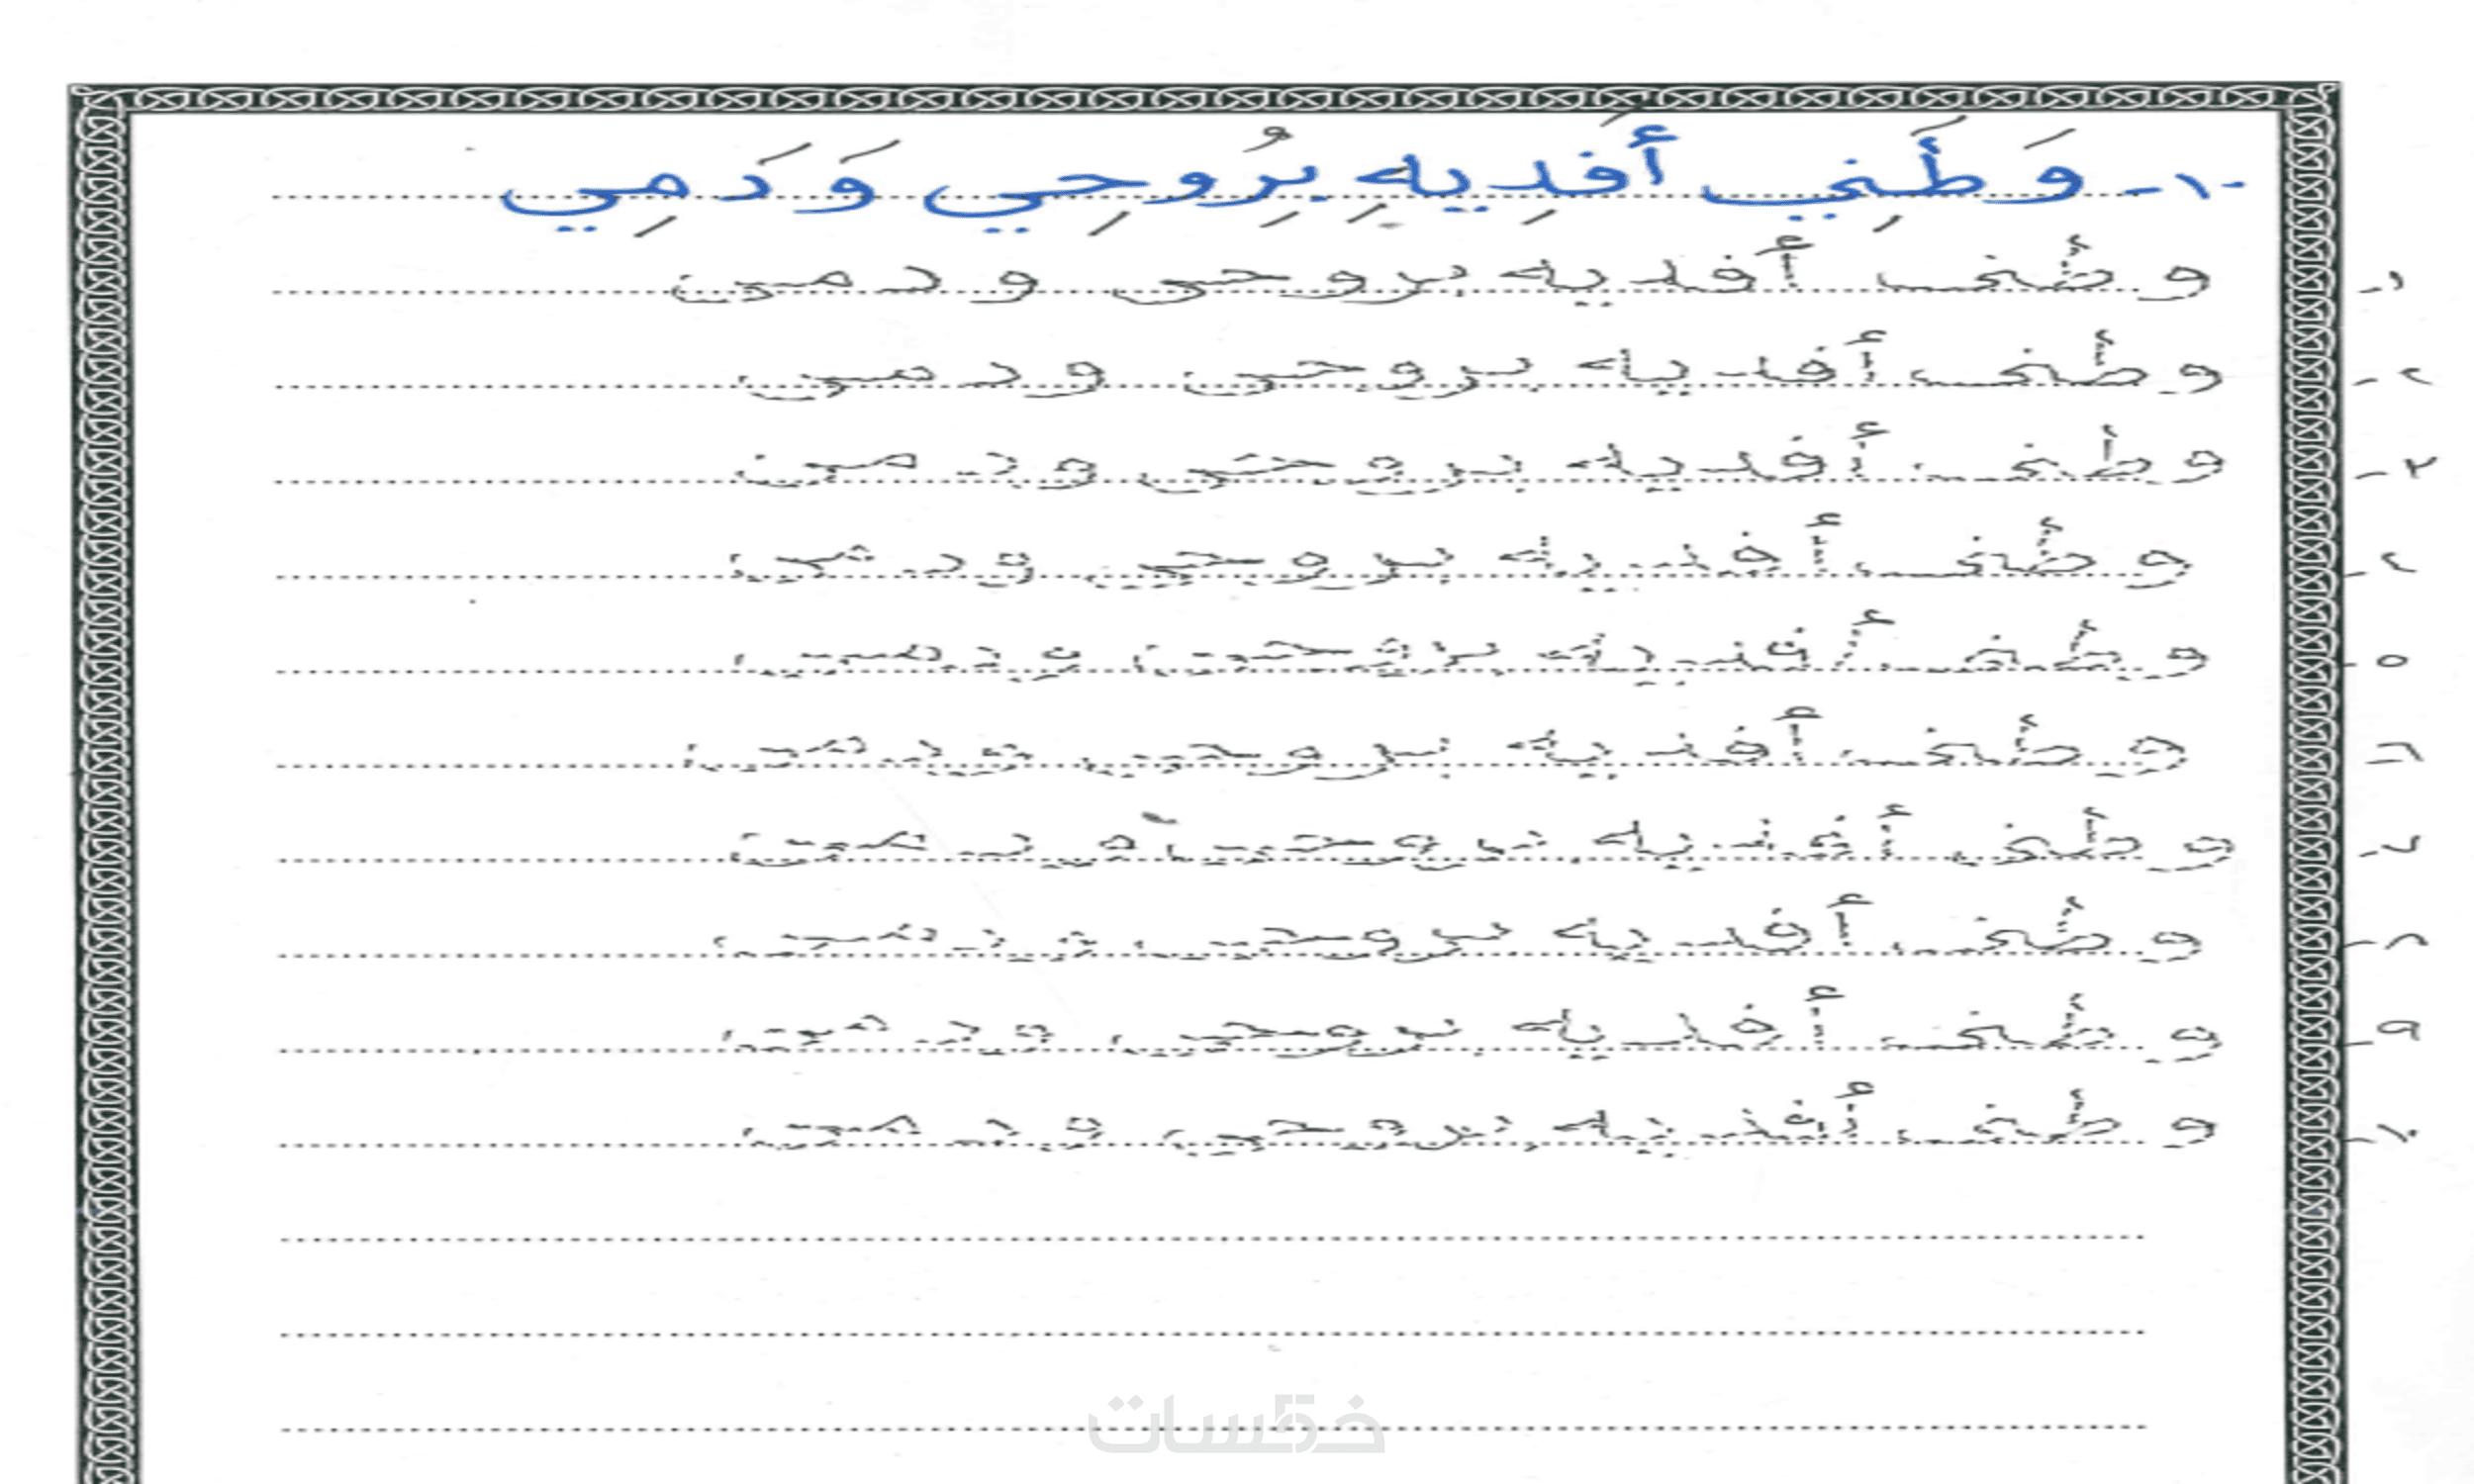 ١٠- وَطَنِي أَفدِيهِ بِرُوحِي وَدَمِي
١- وطني أفديه بروحي ودمي
٢- وطني أفديه بروحي ودمي
٣- وطني أفديه بروحي ودمي
٤- وطني أفديه بروحي ودمي
٥- وطني أفديه بروحي ودمي
٦- وطني أفديه بروحي ودمي
٧- وطني أفديه بروحي ودمي
٨- وطني أفديه بروحي ودمي
٩- وطني أفديه بروحي ودمي
١٠- وطني أفديه بروحي ودمي
خمسات